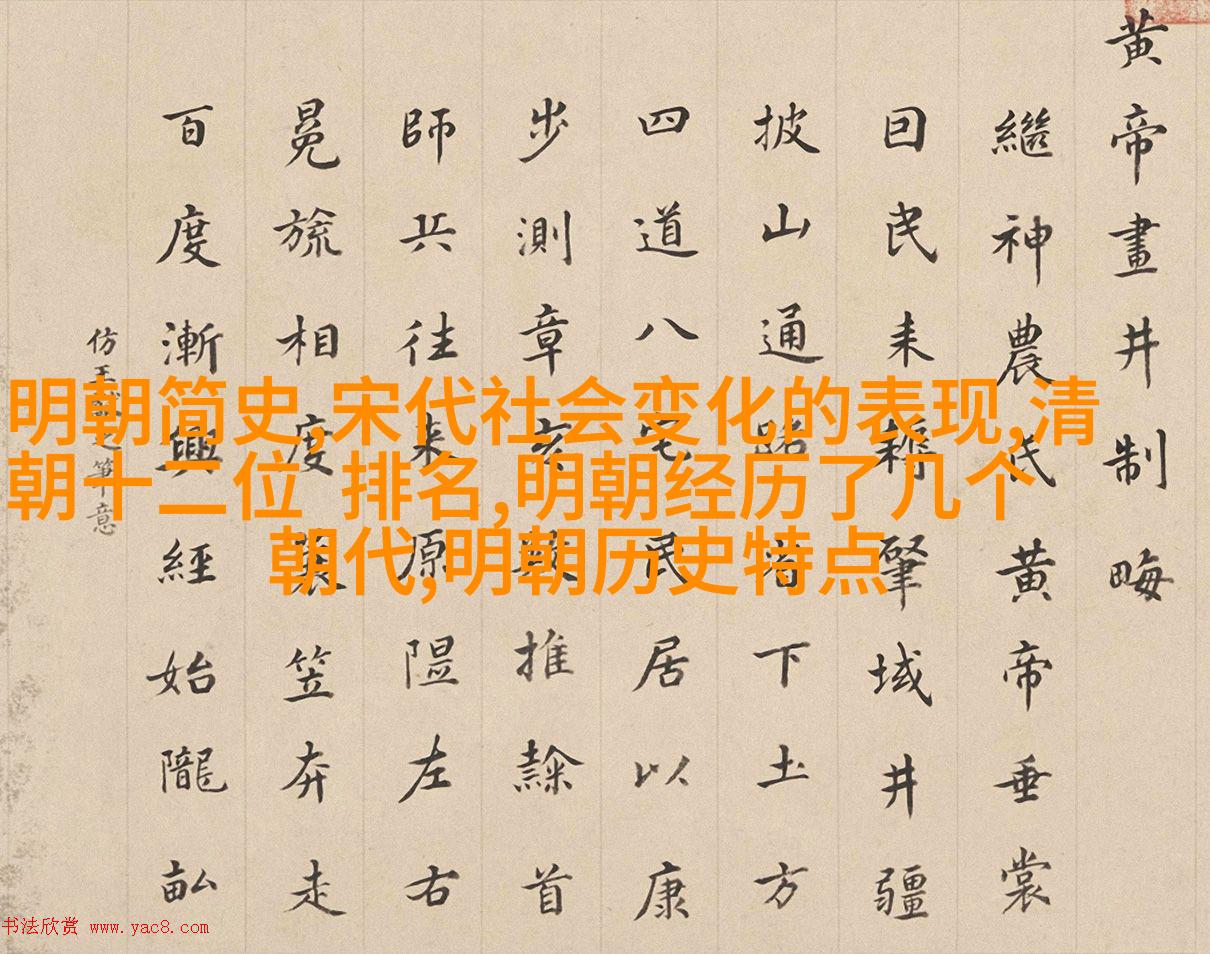 黄帝畫井制畮
繼神農氏黄帝垂裳
囙民耒耨肇域井疆
披山通路下土方
四道八宅民居以康
步測章亥數推隸首
師兵往来原隰左右
冕旒相度蓑笠奔走
百度漸興經始隴畝
仿王之筆意
明朝简史,宋代社会变化的表现,清
朝十二位 排名,明朝经历了几个
朝代,明朝历史特点
书法欣赏 www.yac8.com